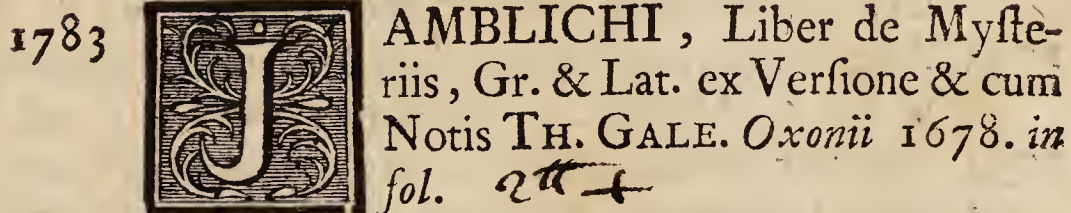 1783 JAMBLICHI, Liber de Myſte-
riis, Gr. & Lat. ex Verſione & cum
Notis TH. GALE. Oxonii 1678. in
fol.